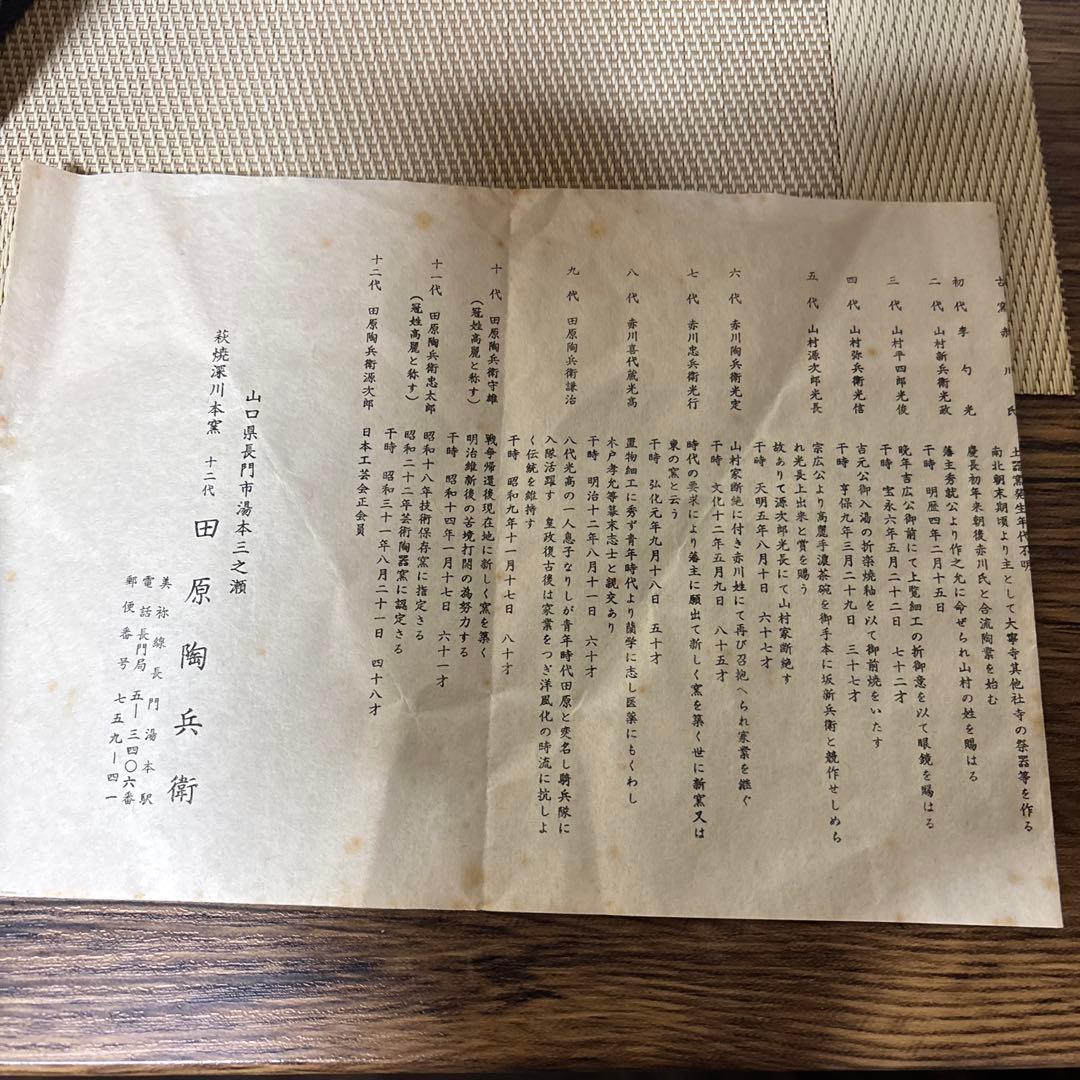 古窯赤川氏
土器窯発生年代不明
南北朝末期頃より主として大寧寺其他社寺の祭器等を作る
初代 李勺光
慶長初年来朝後赤川氏と合流陶業を始む
二代 山村新兵衛光政
藩主秀就公より作之允に命ぜられ山村の姓を賜はる
干時 明暦四年二月十五日
三代 山村平四郎光俊
晩年吉広公御前にて上覧細工の折御意を以て眼鏡を賜はる
干時 宝永六年五月二十二日 七十二才
四代 山村弥兵衛光信
吉元公御八湯の折楽焼釉を以て御前焼をいたす
干時 享保九年三月二十九日 三十七才
五代 山村源次郎光長
宗広公より高麗手濃茶碗を御手本に坂新兵衛と競作せしめら
れ光長上出来と賞を賜う
故ありて源次郎光長にて山村家断絶す
干時 天明五年八月十日 六十七才
六代 赤川陶兵衛光定
山村家断絶に付き赤川姓にて再び召抱へられ家業を継ぐ
干時 文化十二年五月九日 八十五才
七代 赤川忠兵衛光行
時代の要求により藩主に願出て新しく窯を築く世に新窯又は
東の窯と云う
干時 弘化元年九月十八日 五十才
八代 赤川喜代蔵光高
置物細工に秀ず青年時代より蘭学に志し医薬にもくわし
木戸孝允等幕末志士と親交あり
干時 明治十二年八月十一日 六十才
九代 田原陶兵衛謙治
八代光高の一人息子なりしが青年時代田原と変名し騎兵隊に
入隊活躍す 皇政復古後は家業をつぎ洋風化の時流に抗しよ
く伝統を維持す
干時 昭和九年十一月十七日 八十才
十代 田原陶兵衛守雄
(冠姓高麗と称す)
戦争帰還後現在地に新しく窯を築く
明治維新後の苦境打開の為努力する
干時 昭和十四年一月十七日 六十一才
十一代 田原陶兵衛忠太郎
(冠姓高麗と称す)
昭和十八年技術保存窯に指定さる
昭和二十二年芸術陶器窯に認定さる
干時 昭和三十一年八月二十一日 四十八才
十二代 田原陶兵衛源次郎
日本工芸会正会員
山口県長門市湯本三之瀬
萩焼深川本窯 十二代 田原陶兵衛
美祢線長門湯本駅
電話長門局 五―三四〇六番
郵便番号 七五九―四一